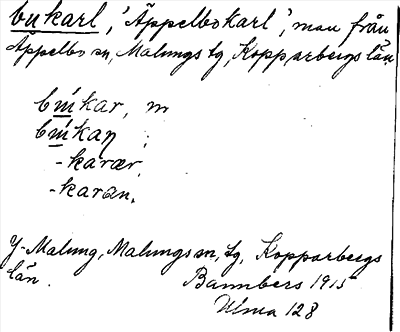 bukarl, 'Äppelbokarl', man från
Äppelbo sn, Malungs tg, Kopparbergs län
kar, m
-karær,
-karan,
Y-Malung, Malungs sn, tg, Kopparbergs
län. Bannbers 1915
Ulma 128